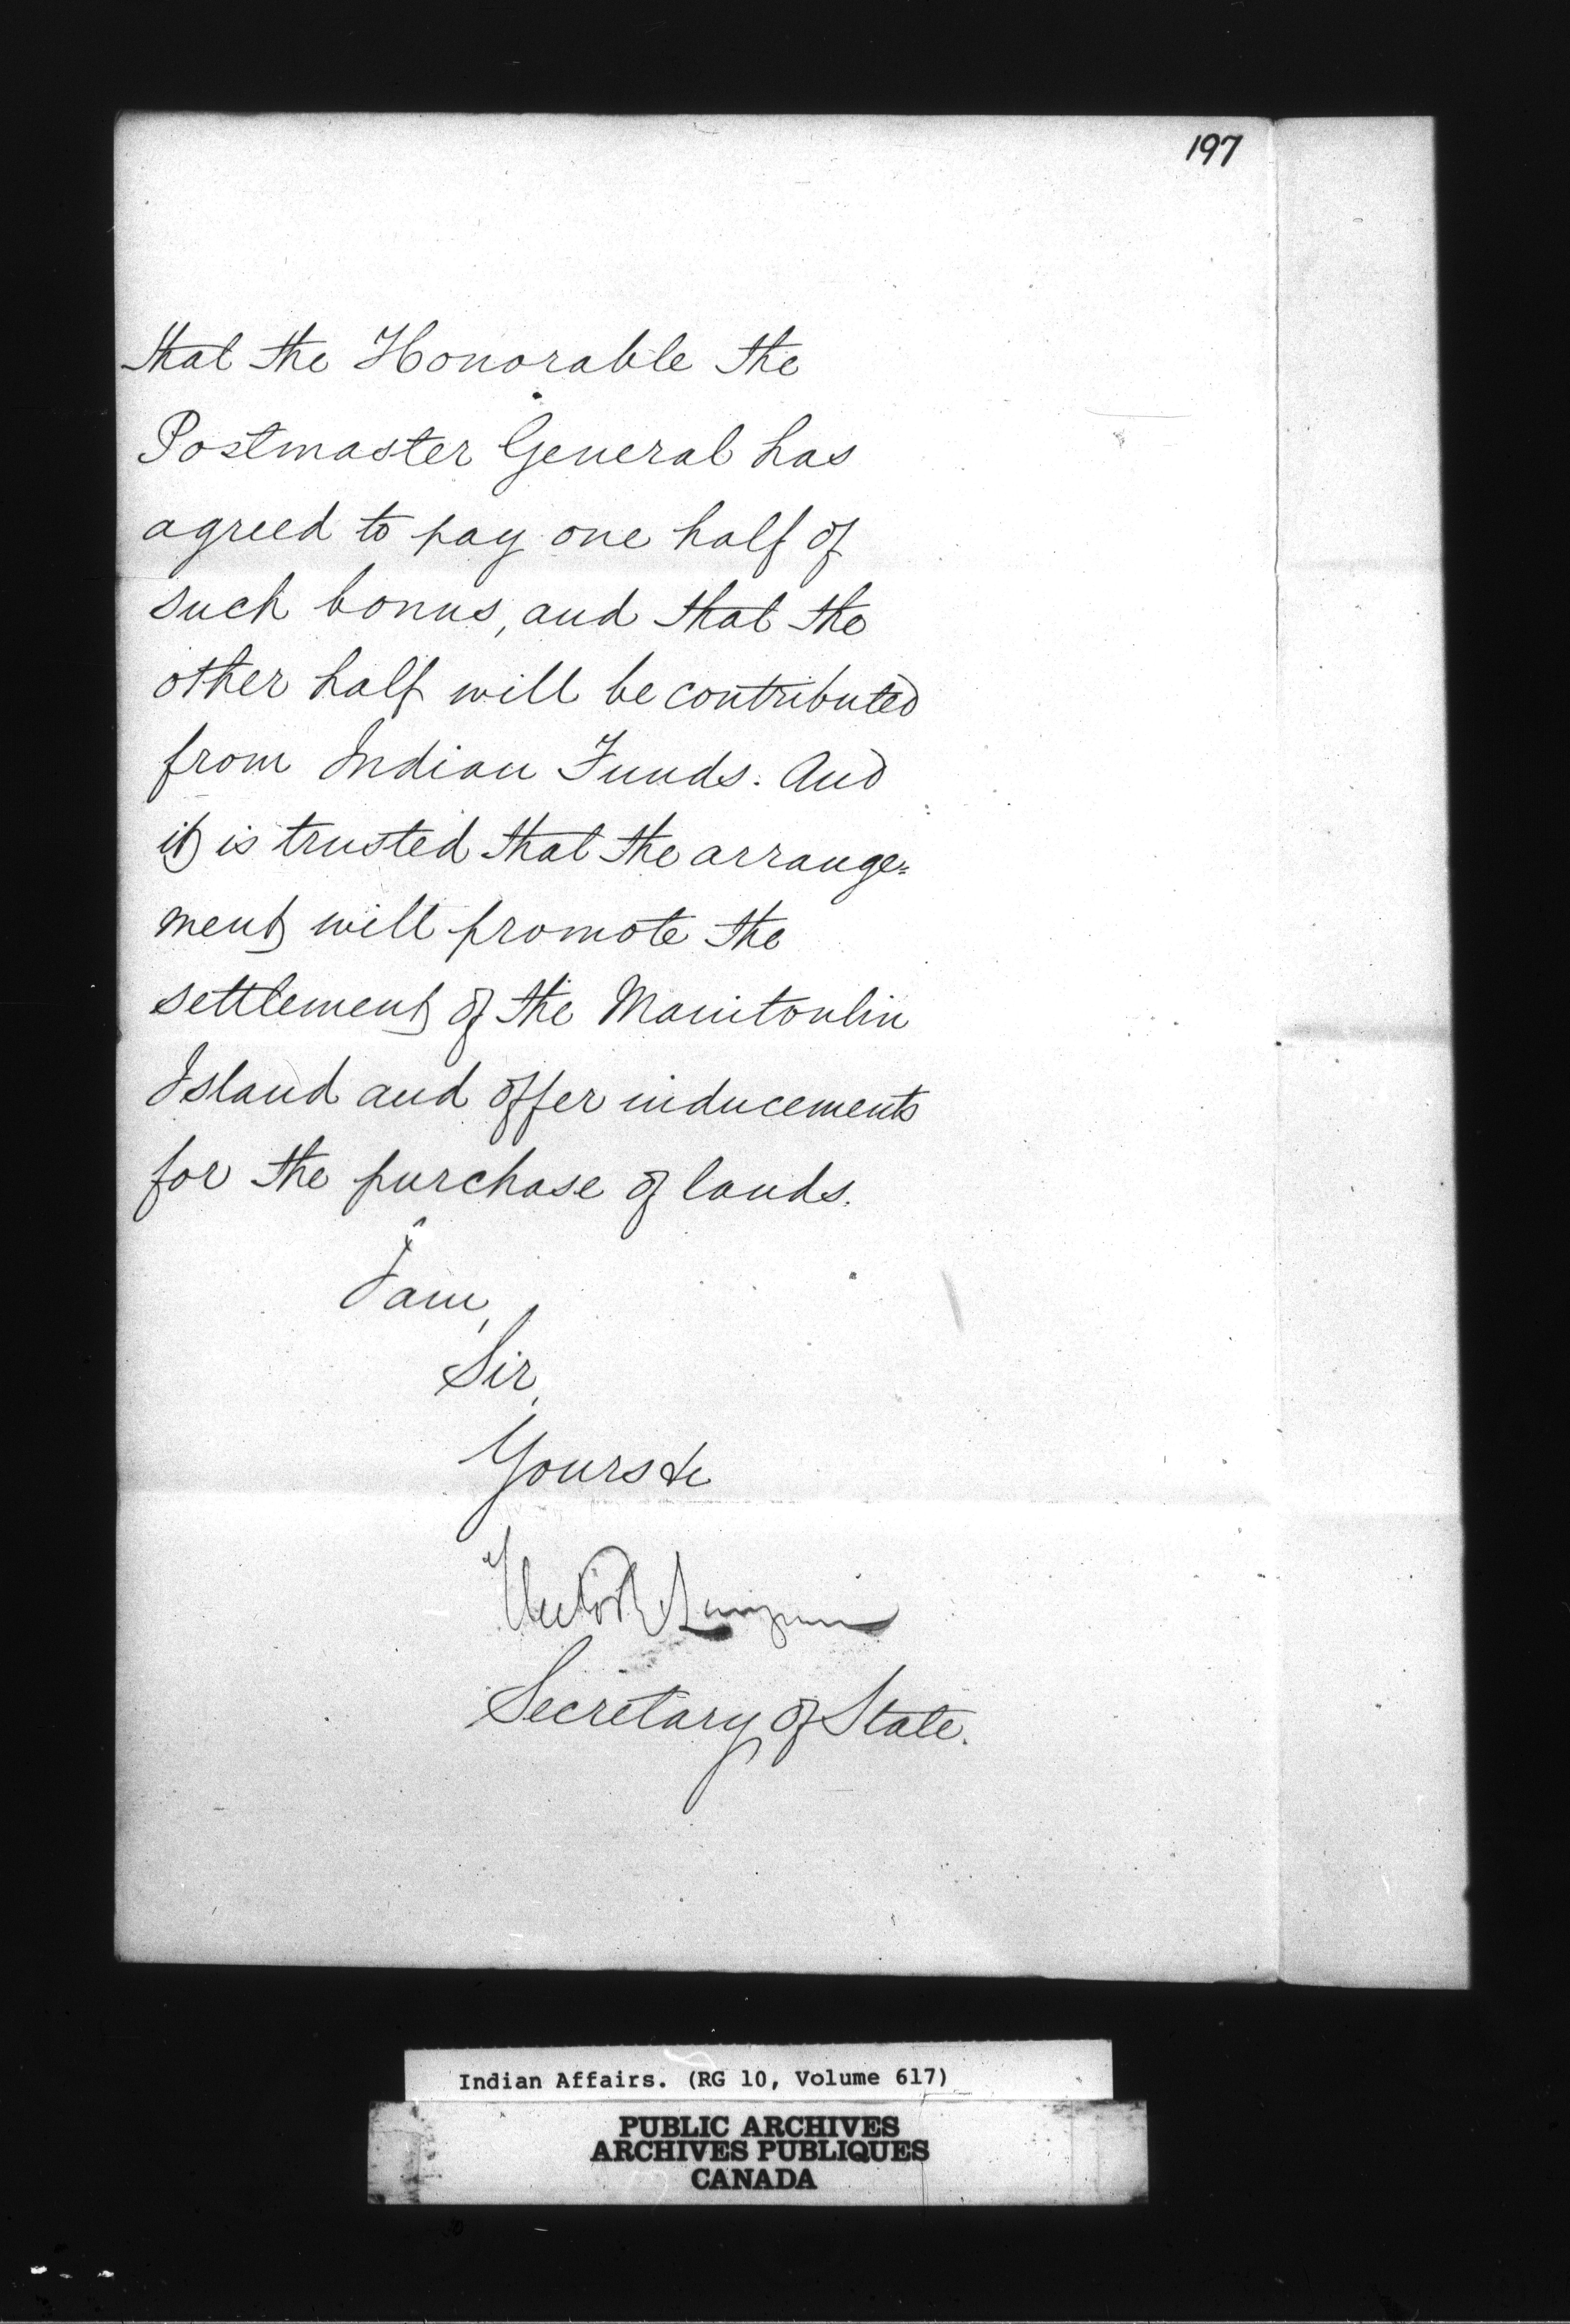 197
that the Honorable the
Postmaster General has
agreed to pay one half of
such bonus, and that the
other half will be contributed
from Indian Funds. And
it is trusted that the arrange=
ment will promote the
settlement of the Manitoulin
Island and offer inducements
for the purchase of lands.
I am,
Sir,
Yours &c
Hector L Langevin
Secretary of State.
Indian Affairs. (RG 10, Volume 617)
PUBLIC ARCHIVES
ARCHIVES PUBLIQUES
CANADA